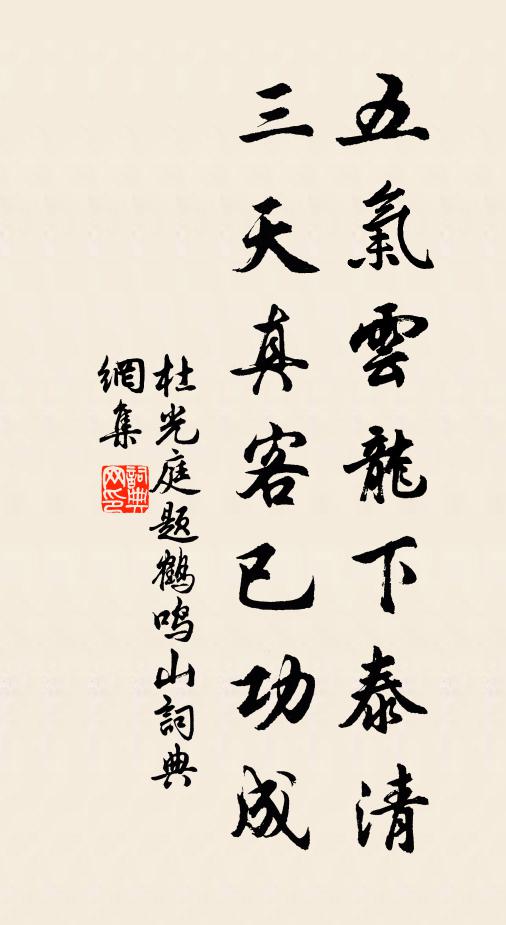 五氣雲龍下泰清
三天真客已功成
杜光庭題鶴鳴山詞典
網集
詞典網印